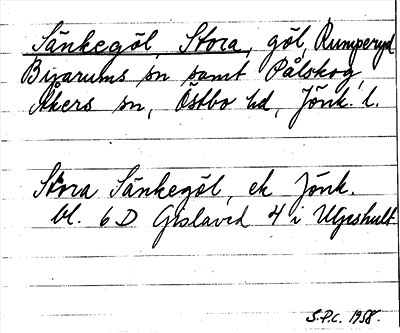 Sänkegöl, Stora, göl, Rumperyd
Byarums sn samt Pålskog,
Åkers sn, Östbo hd, Jönk. l.
Stora Sänkegöl, ek Jönk.
bl. 6 D Gislaved 4 i Ulgeshult
S.P.C. 1958.